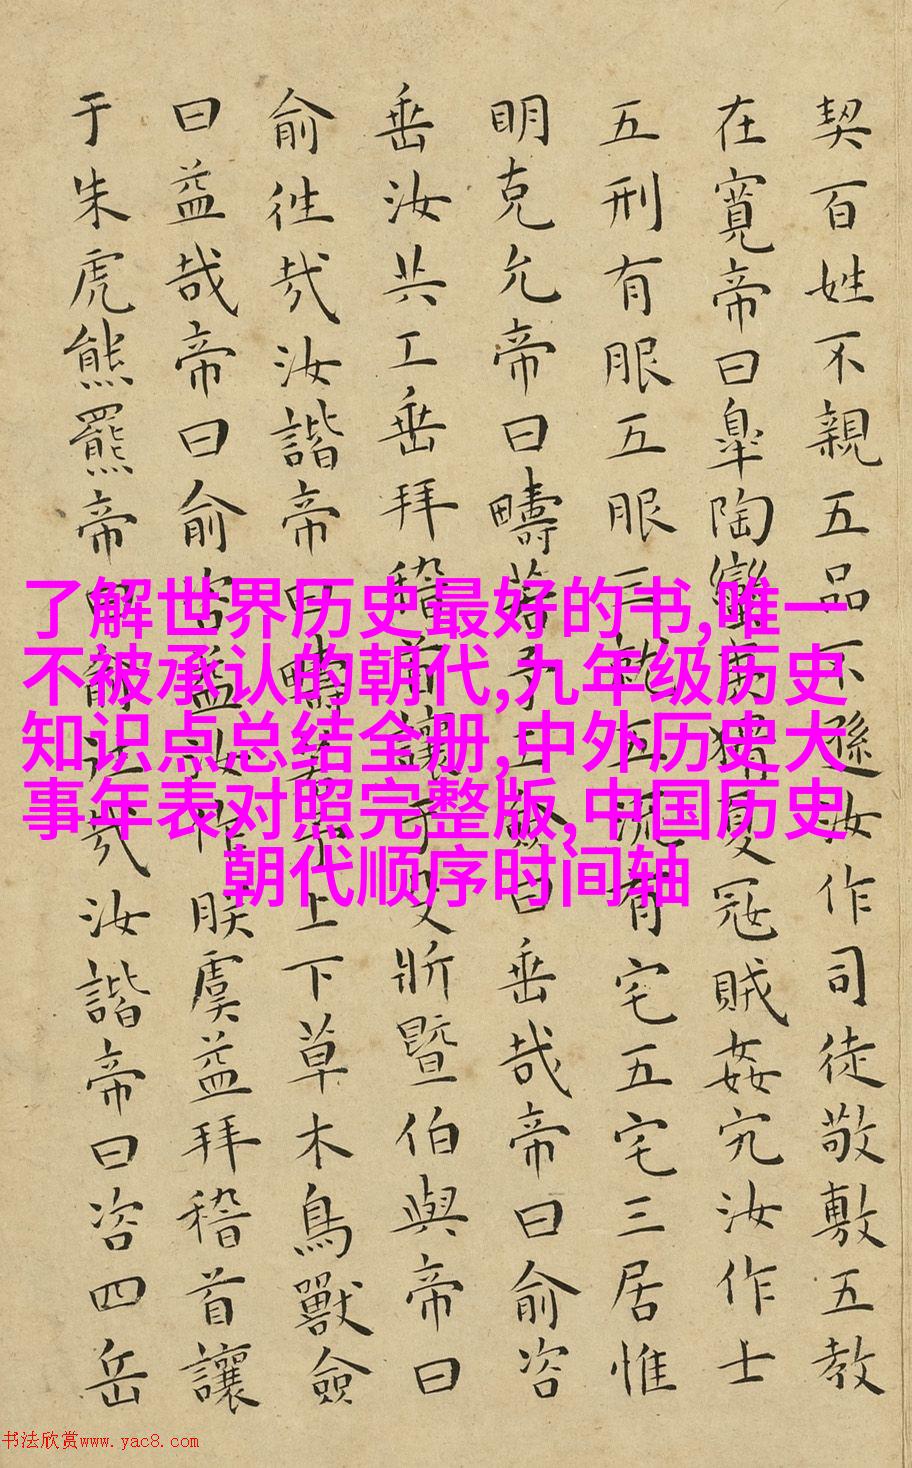 契百姓不親五品不遜汝作司徒敬敷五教
在寬帝曰皐陶蠻夷猾夏冦賊姦宄汝作士
五刑有服五服三就五流有宅五宅三居惟
明克允帝曰疇若予工僉曰垂哉帝曰俞咨
垂汝共工垂拜稽首讓于殳斨暨伯與帝曰
俞往哉汝諧帝曰疇若予上下草木鳥獸僉
曰益哉帝曰俞咨益汝作朕虞益拜稽首讓
于朱虎熊羆帝曰俞往哉汝諧帝曰咨四岳
了解世界历史最好的书,唯一
不被承认的朝代,九年级历史
知识点总结全册,中外历史大
事年表对照完整版,中国历史
朝代顺序时间轴
书法欣赏www.yac8.com